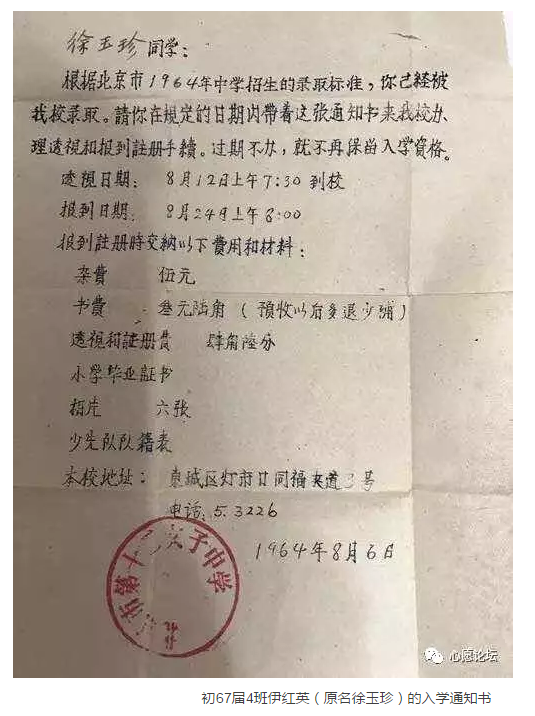 徐玉珍同学：
根据北京市1964年中学招生的录取标准，你已經被
我校录取。請你在規定的日期内帶着这张通知书来我校办
理透視和报到註册手續。过期不办，就不再保留入学資格。
透視日期： 8月12日上午7:30到校
报到日期： 8月24日上午8:00
报到註册時交納以下費用和材料：
杂費 伍元
书費 叁元陆角（預收以后多退少補）
透視和註册費 肆角陸分
小学毕业証书
相片 六张
少先队队籍表
本校地址： 東城区灯市口同福夾道3号
电话：5.3226
1964年8月6日
市第十 女子中学
心愿论坛
初67届4班伊红英（原名徐玉珍）的入学通知书